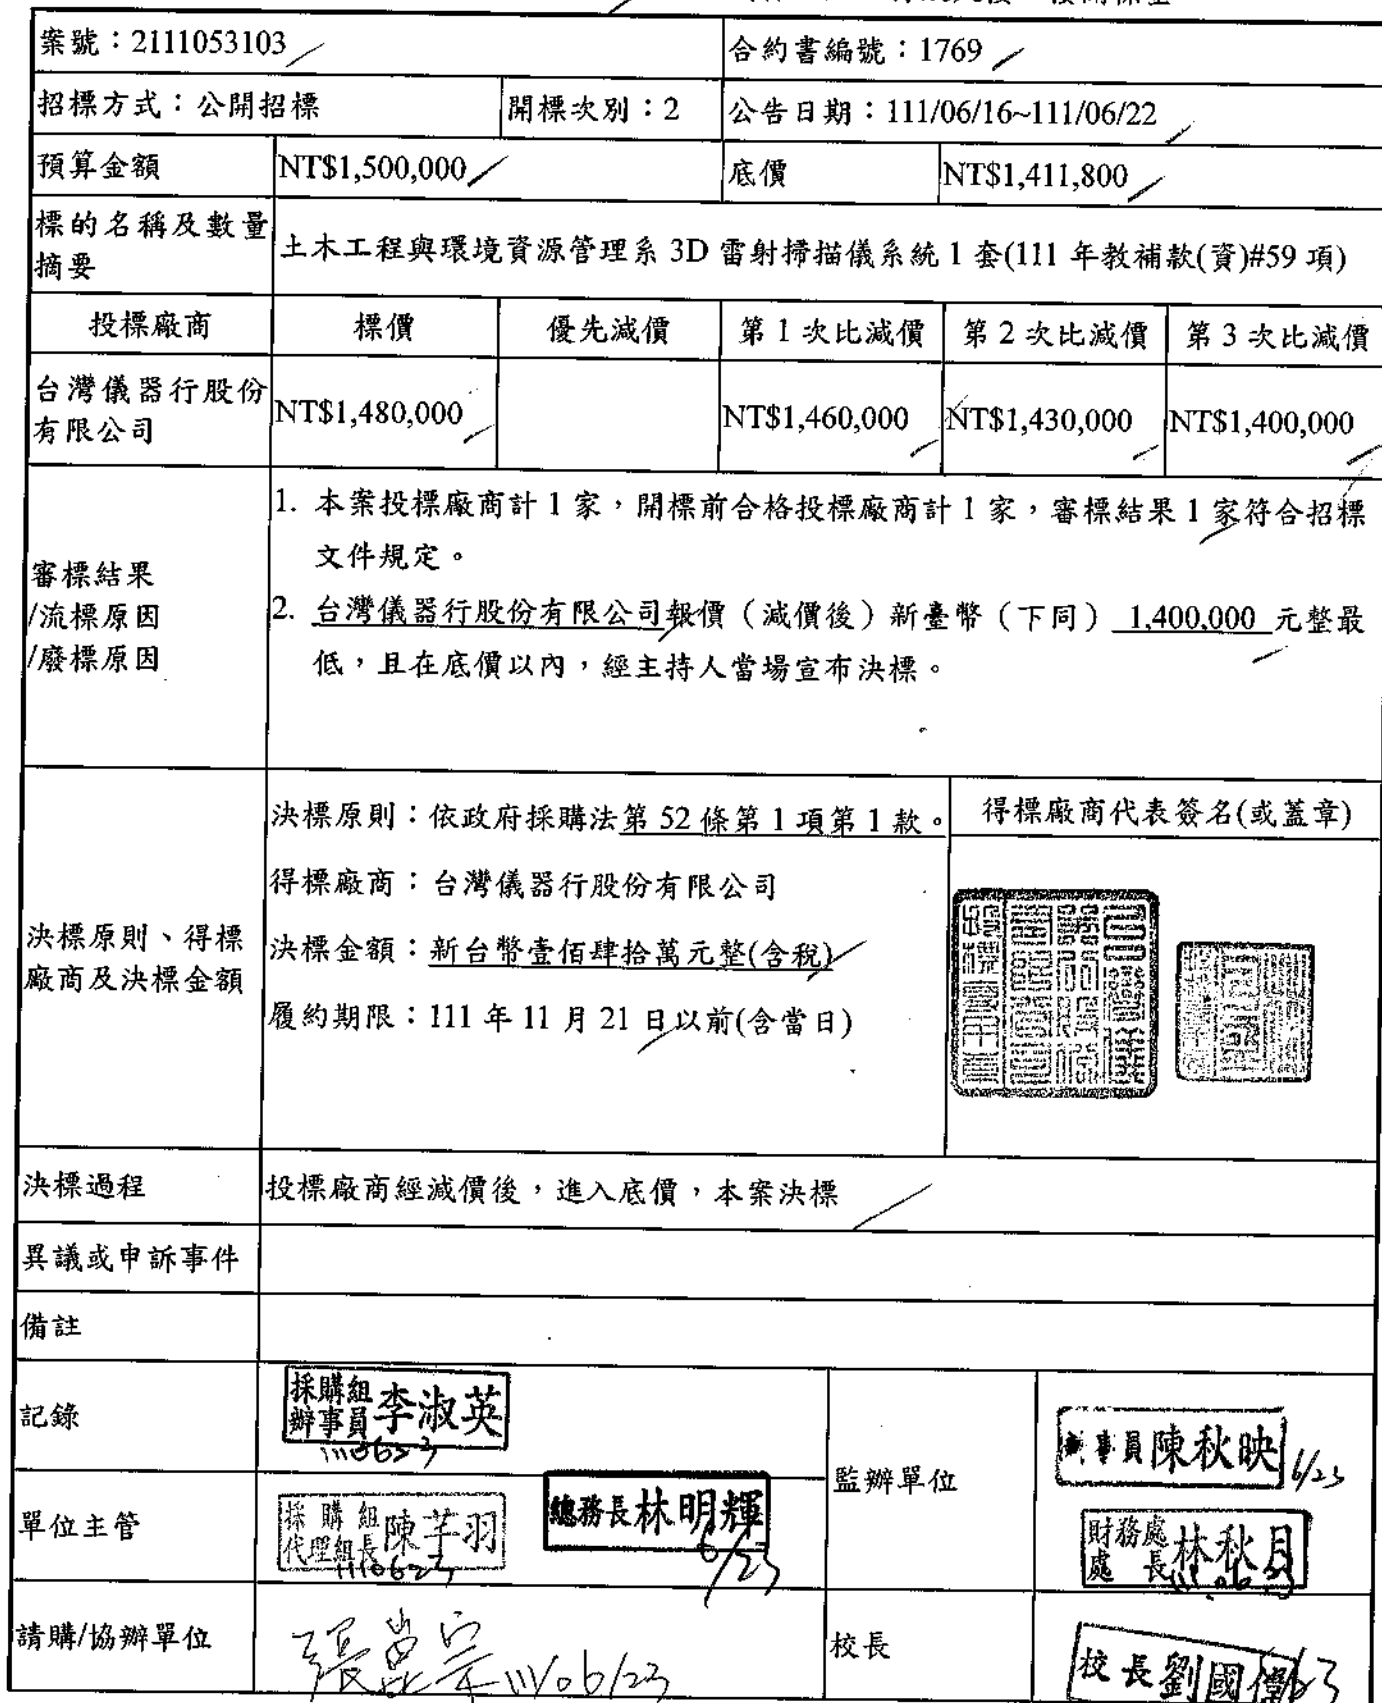 案號：2111053103
合約書編號：1769
招標方式：公開招標
開標次別：2
公告日期：111/06/16~111/06/22
預算金額
NT$1,500,000
底價
NT$1,411,800
標的名稱及數量
摘要
土木工程與環境資源管理系 3D 雷射掃描儀系統 1 套(111 年教補款(資)#59 項)
投標廠商
標價
優先減價
第 1 次比減價
第 2 次比減價
第 3 次比減價
台灣儀器行股份
有限公司
NT$1,480,000
NT$1,460,000
NT$1,430,000
NT$1,400,000
審標結果
/流標原因
/廢標原因
1. 本案投標廠商計 1 家，開標前合格投標廠商計 1 家，審標結果 1 家符合招標
文件規定。
2. 台灣儀器行股份有限公司報價（減價後）新臺幣（下同） 1,400,000 元整最
低，且在底價以內，經主持人當場宣布決標。
決標原則、得標
廠商及決標金額
決標原則：依政府採購法第 52 條第 1 項第 1 款。
得標廠商：台灣儀器行股份有限公司
決標金額：新台幣壹佰肆拾萬元整(含稅)
履約期限：111 年 11 月 21 日以前(含當日)
得標廠商代表簽名(或蓋章)
決標過程
投標廠商經減價後，進入底價，本案決標
異議或申訴事件
備註
記錄
採購組
辦事員 李淑英
1110623
監辦單位
辦事員 陳秋映 6/23
單位主管
採購組
代理組長 陳芊羽
1110623
總務長 林明輝
6/23
財務處
處長 林秋月
請購/協辦單位
111/06/23
校長
校長 劉國偉